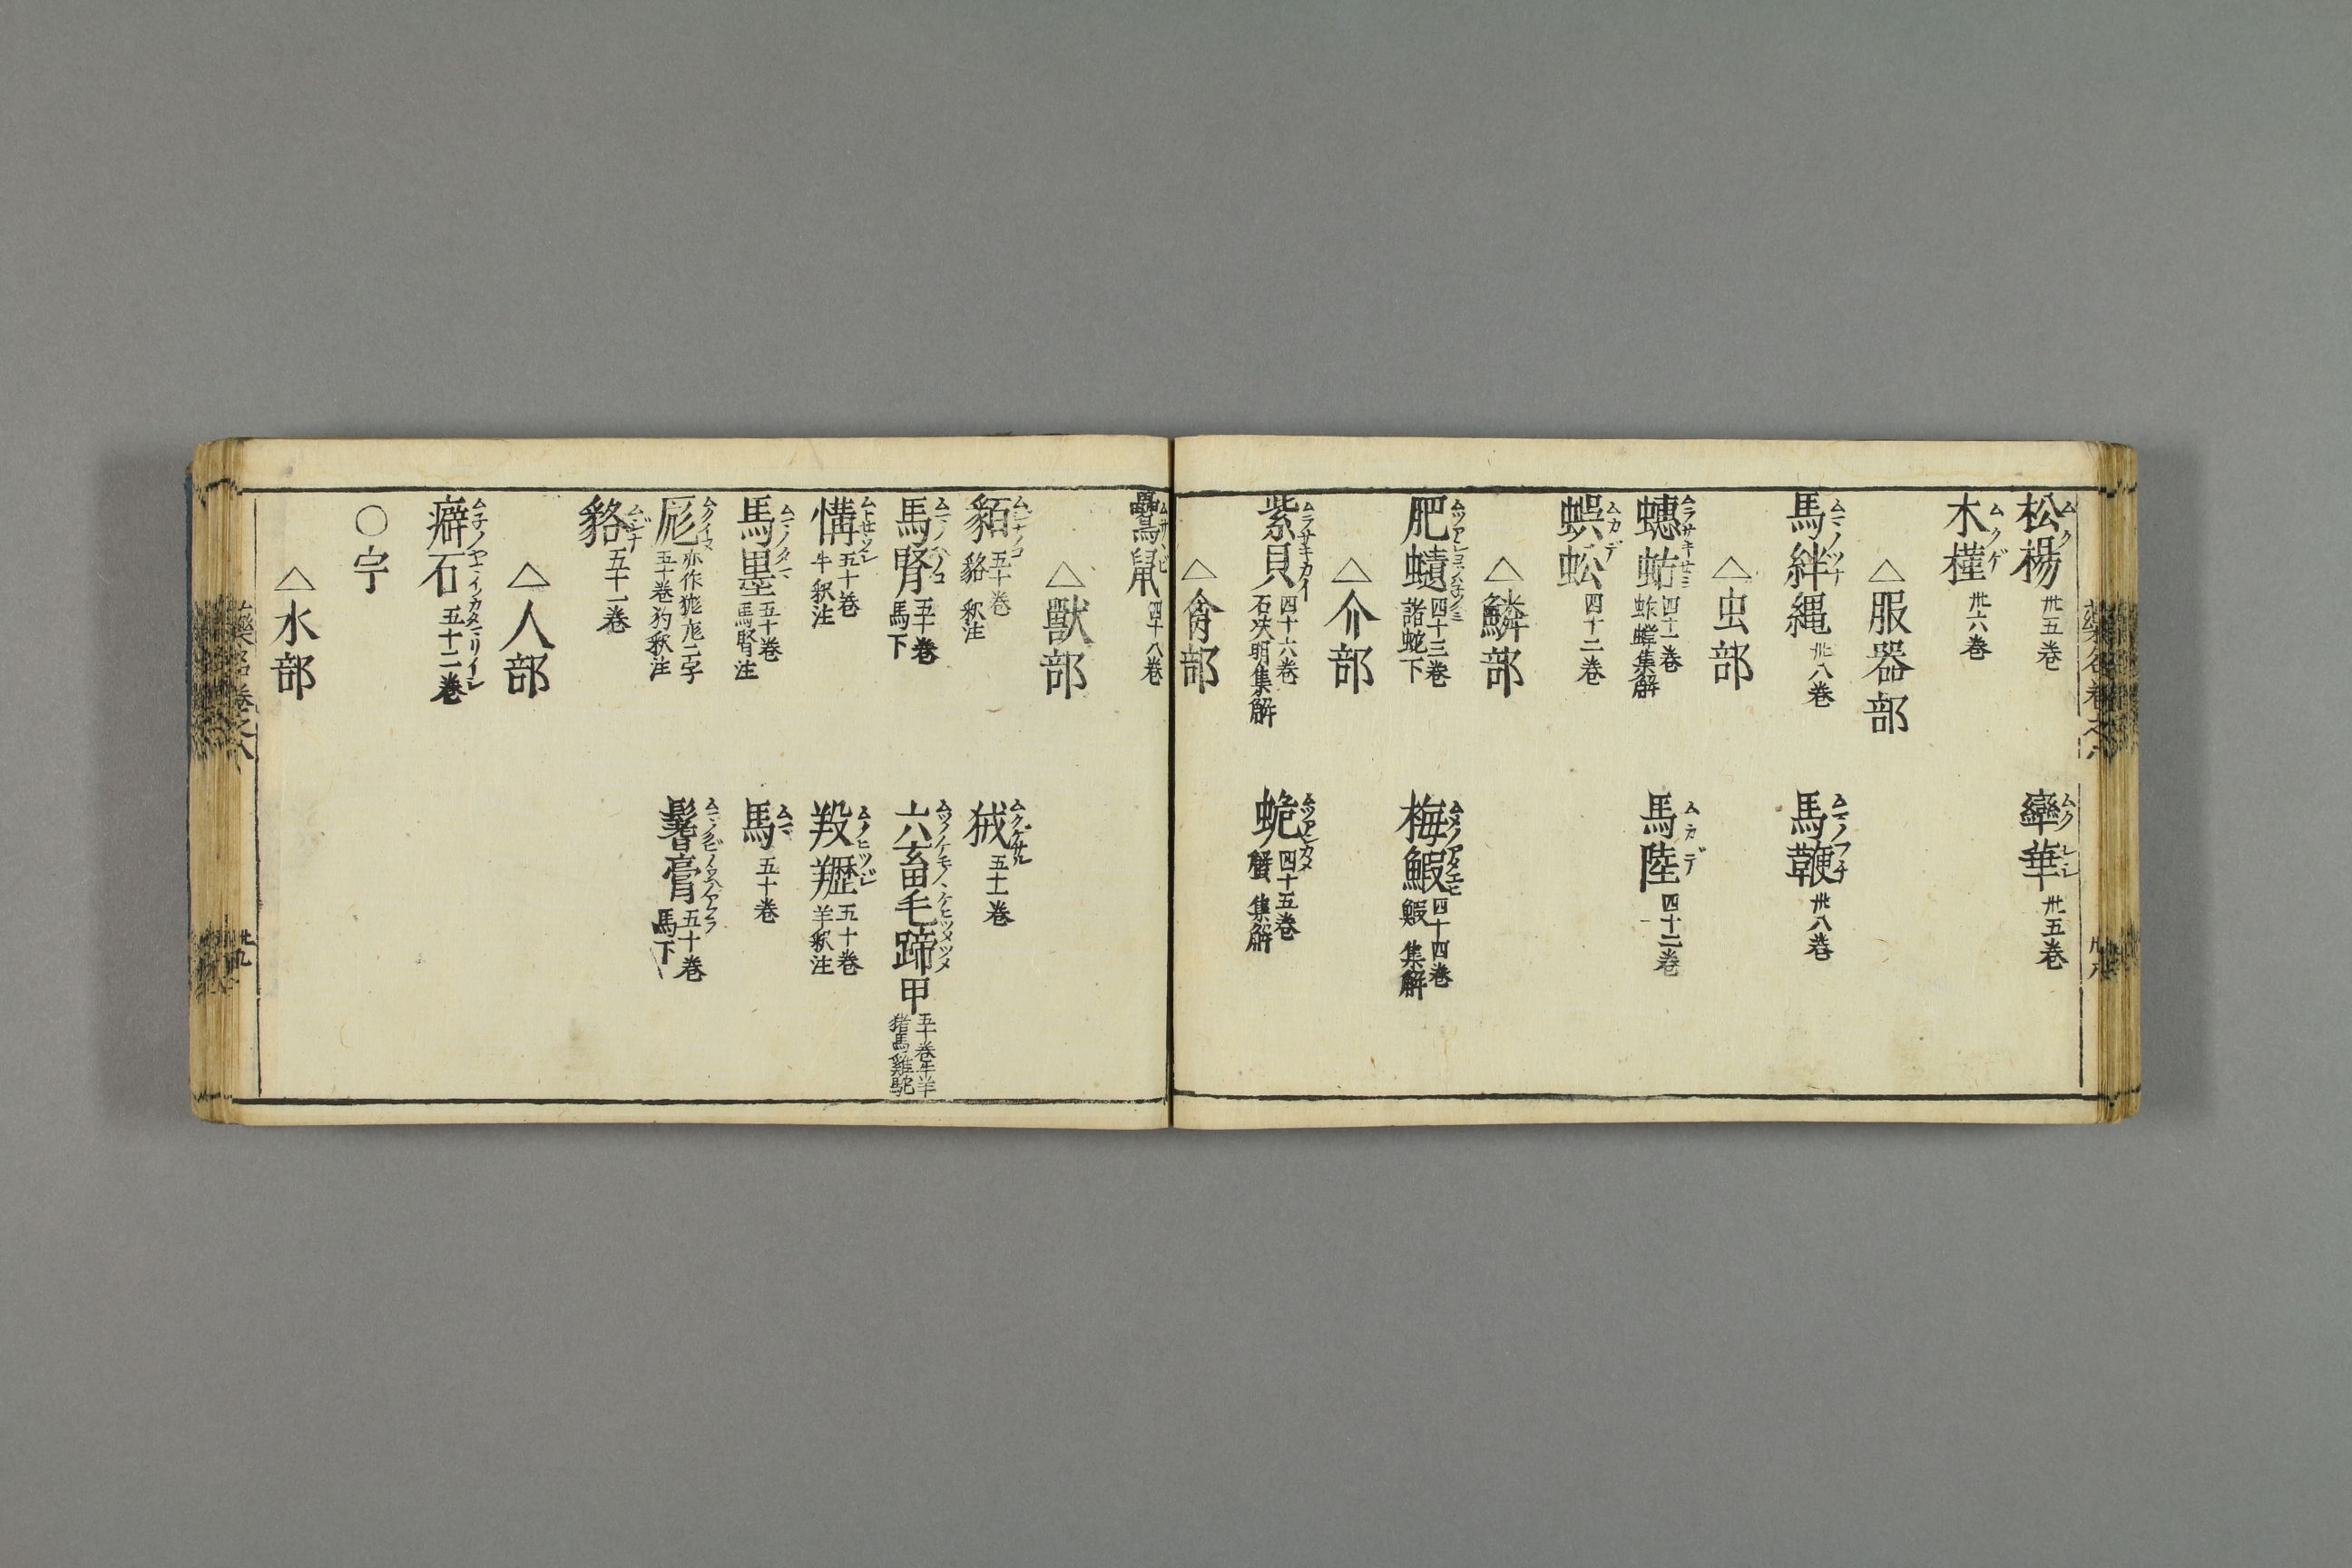 松楊 ムク 卅五巻
欒華 ムクレニ 卅五巻
木槿 ムクゲ 卅六巻
△服器部
馬絆縄 ムマノツナ 卅八巻
馬鞭 ムマノフチ 卅八巻
△虫部
蟪蛄 ムラサキせミ 四十一巻 蚱蟬集解
馬陸 ムカデ 四十二巻
蜈蚣 ムカデ 四十二巻
△鱗部
肥䗯 四十三巻 諸蛇下
梅鰕 四十四巻 鰕集解
△介部
紫貝 ムラサキカイ 四十六巻 石决明集解
蛫 四十五巻 蟹集解
△禽部
鸓鼠 ムササビ 四十八巻
△獣部
貊 五十巻 貉釈注
狨 ムクゲザル 五十一巻
馬腎 ムマノヘノコ 五十巻 馬下
六畜毛蹄甲 ムツノケモノノケヒツメツメ 五十巻牛羊猪馬雞駝
㹇 五十巻 牛釈注
羖䍽 ムクヒツジ 五十巻 羊釈注
馬墨 ムマノタマ 五十巻 馬腎注
馬 ムマ 五十巻
尨 ムクイヌ 亦作狵庬二字 五十巻狗釈注
鬐膏 五十巻 馬下
貉 ムジナ 五十一巻
△人部
癖石 五十二巻
○宇
△水部
藥名巻之八
卅八
藥名巻之八
卅九